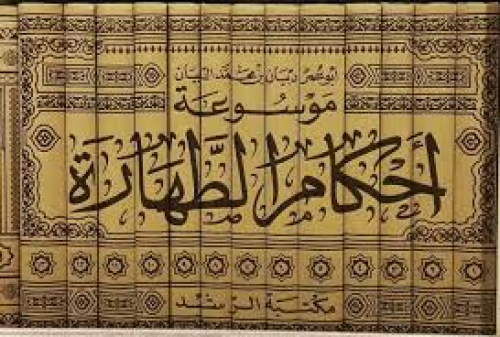 أبو عمر دبيان بن محمد الدبيان
موسوعة
أحكام الطهارة
مكتبة الرشد